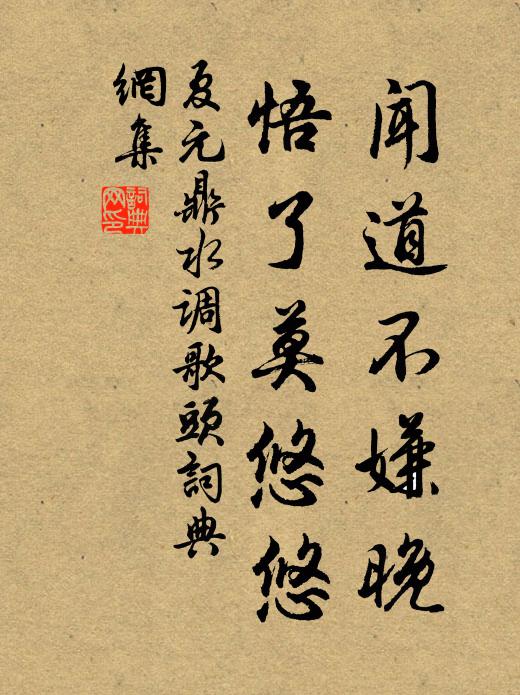 闻道不嫌晚
悟了莫悠悠
夏元鼎水调歌头詞典
網集
詞典
网印